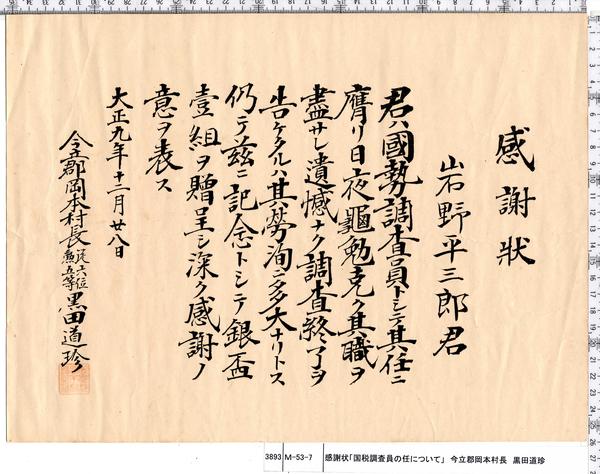 感謝狀
岩野平三郎君
君ハ國勢調査員トシテ其任ニ
膺リ日夜黽勉克ク其職ヲ
盡サレ遺憾ナク調査終了ヲ
告ケタルハ其勞洵ニ多大ナリトス
仍テ茲ニ記念トシテ銀盃
壹組ヲ贈呈シ深ク感謝ノ
意ヲ表ス
大正九年十二月廿八日
今立郡岡本村長 從六位 勲五等 黒田道珍
3893 M-53-7 感謝状「国税調査員の任について」 今立郡岡本村長 黒田道珍